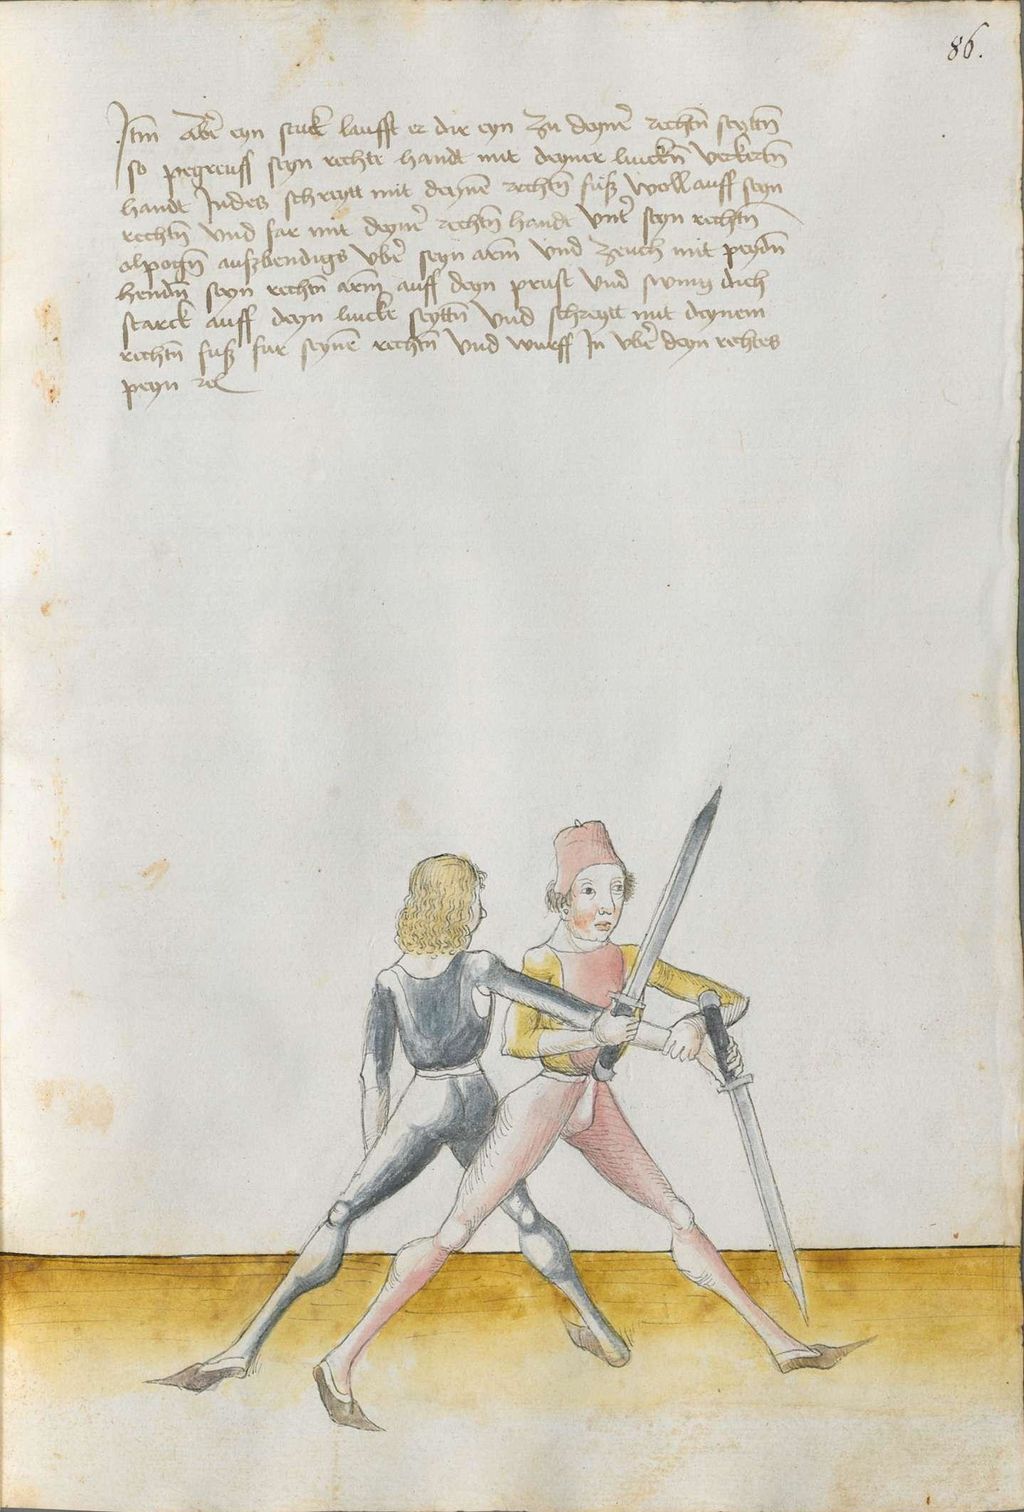 86.
Itm̄ Aber̄ eyn stuck laufft er dir eyn zu deyner̄ rechtn̄ seyttn̄
so pegreuff seyn rechte handt mit deyner linckn̄ verkertn̄
handt Indes schreytt mit deynē rechtn̄ fuß woll auff seyn
rechtn̄ Vnd far mit deyner̄ rechtn̄ handt Vntr̄ seyn rechtn̄
elpogn̄ außbendigs vber̄ seyn arm Vnd zeuch mit peydn̄
hendn̄ seyn rechtn̄ arm auff deyn prust Vnd swing dich
starck auff deyn lincke seyttn̄ Vnd schreytt mit deynem
rechtn̄ fuß fur seynē rechtn̄ Vnd wurff In vber̄ deyn rechtes
peyn